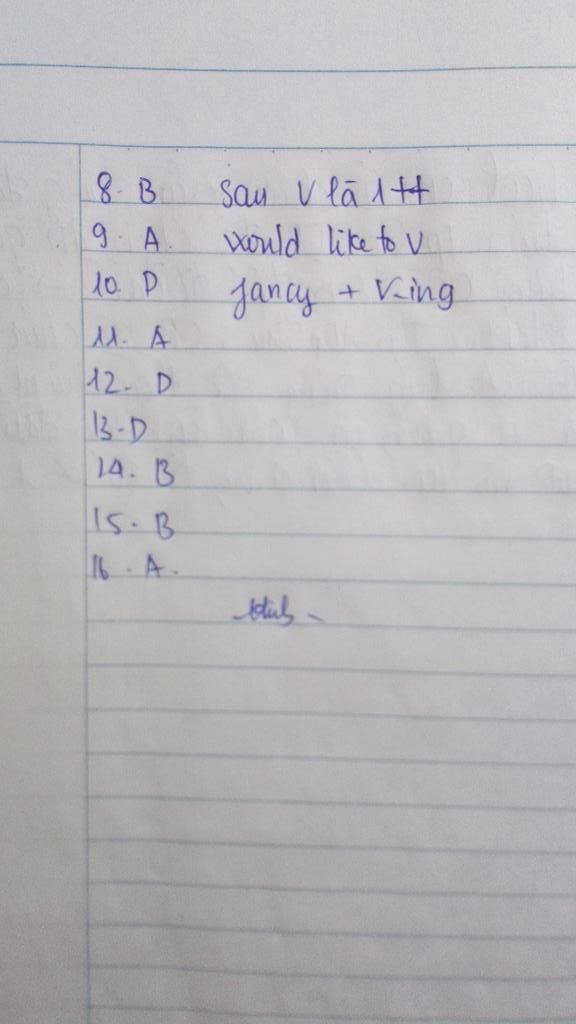 8. B sau V là 1 tt
9. A. would like to V
10. D fancy + V-ing
11. A
12. D
13. D
14. B
15. B
16. A.